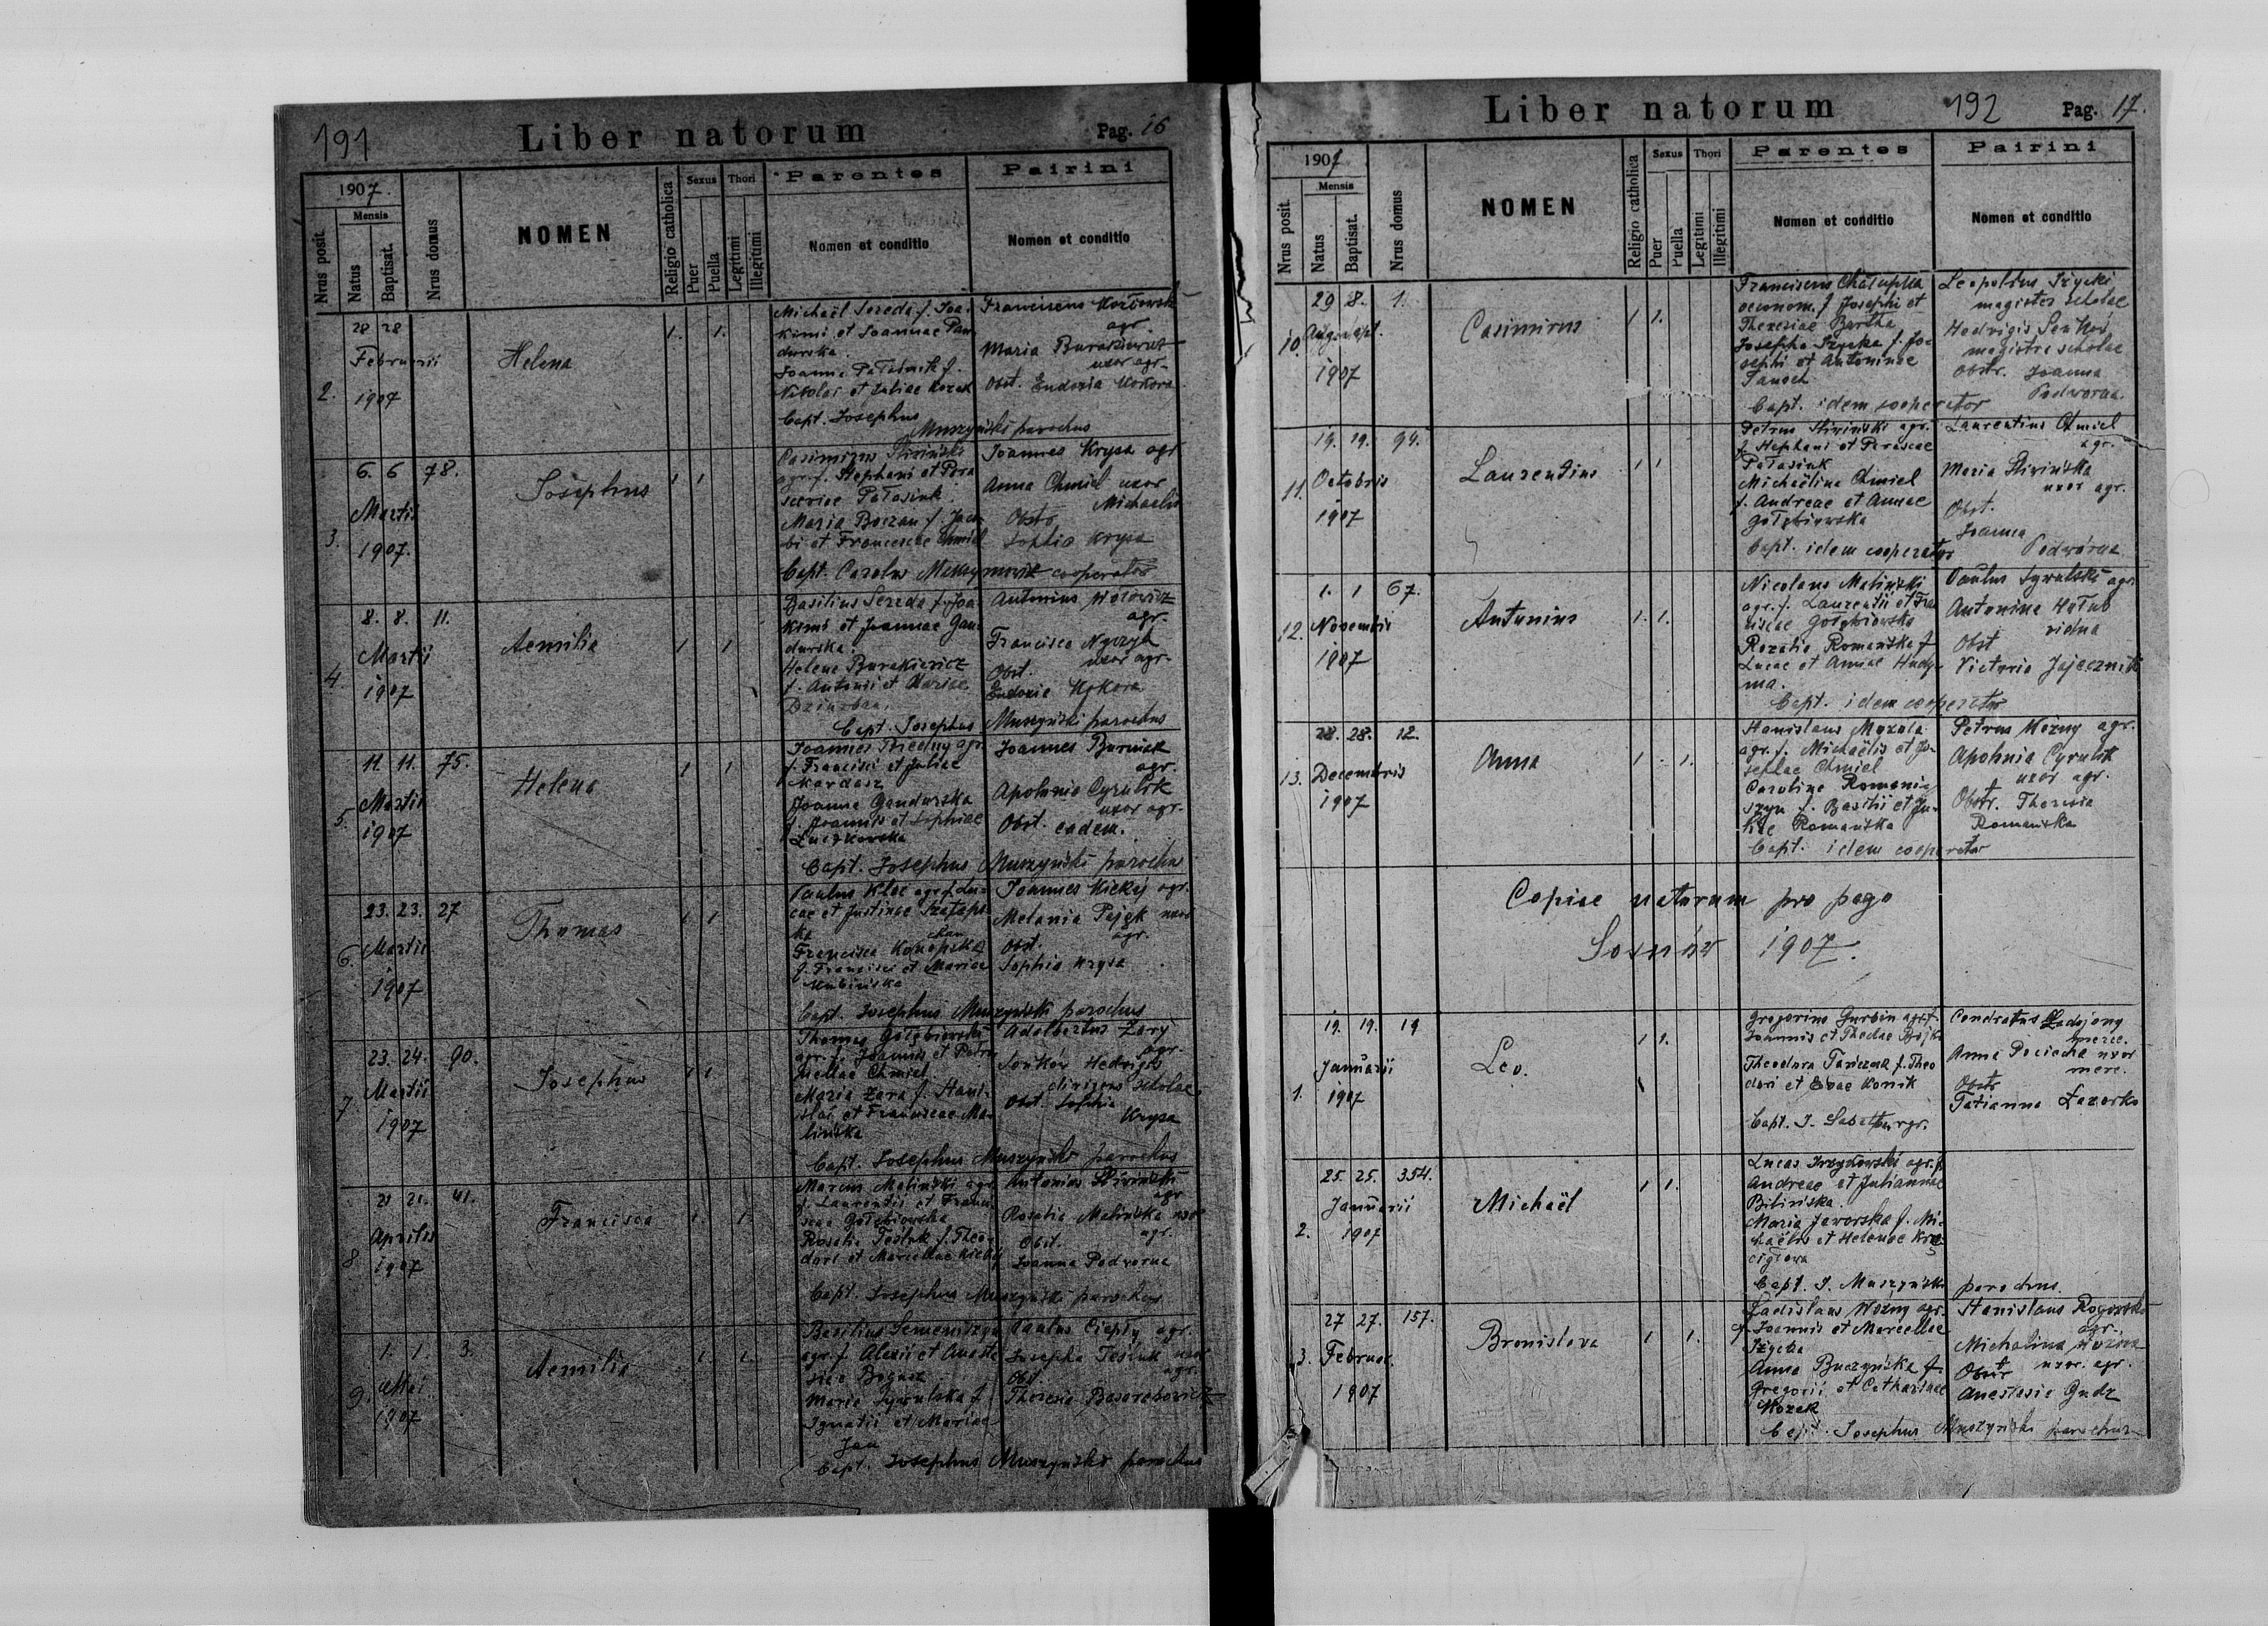 191
Liber natorum
Pag. 16
1907.
Nrus posit.
Mensis
Natus
Baptisat.
Nrus domus
NOMEN
Religio catholica
Sexus
Puer
Puella
Thori
Legitimi
Illegitimi
Parentes
Nomen et conditio
Patrini
Nomen et conditio
2.
28 28
Februarii
1907
Helena
1. 1.
Michaël Sereda f. Joa-
kimi et Joannae
Joanna
Nikolai et Juliae
Bapt. Josephus
Muszyński parochus
Franciscus
agr.
Maria Burakiewicz
uxor agr.
Obst. Eudoxia Kokora
3.
6. 6 78.
Martii
1907.
Josephus
1 1
Casimirus
agr. f. Stephani et Para
sceviae Patasiuk
Maria Boczan f. Jaco
bi et Franciscae Chmiel
Bapt. Carolus cooperator
Joannes Krysa agr
Anna Chmiel uxor
Michaelis
Obst.
Sophia Krysa
4.
8. 8. 11.
Martii
1907
Aemilia
1 1
Basilius Sereda f. Joa
kimi et Joannae Gan
durska.
Helena Burakiewicz
f. Antonii et Mariae
Bapt. Josephus Muszyński parochus
Antonius
agr.
Francisca
uxor agr.
Obst.
Eudoxia Kokora
5.
11 11. 75.
Martii
1907
Helena
1 1
Joannes Biedny agr.
f. Francisci et Juliae
Mardasz
Joanna Gandurska
f. Joannis et Sophiae
Luczkowska
Bapt. Josephus Muszyński parochus
Joannes Burniak
agr.
Apolonia Cyrulik
uxor agr.
Obst. eadem.
6.
23. 23. 27
Martii
1907
Thomas
1 1
Paulus Kloc agr. f. Lu-
cae et Justinae
Francisca
f. Francisci et Mariae
Kubińska
Bapt. Josephus Muszyński parochus
Joannes Kickij agr.
Melania Pająk uxor
agr.
Obst.
Sophia Krysa
7
23. 24. 90.
Martii
1907
Josephus
1 1
Thomas Gołębiowski
agr. f. Joannis et Petro
nellae Chmiel
Maria Żara f. Stani-
slai et Franciscae Ma-
lińska
Bapt. Josephus Muszyński parochus
Adalbertus Żary
agr.
Senków Hedvigis
dirigens scholae
Obst. Sophia
Krysa
8
21 21. 41.
Aprilis
1907
Francisca
1. 1.
Marcus Maliński agr.
f. Laurentii et Franci
scae Gołębiowska
Rosalia Tesluk f. Theo-
dori et Marcellae Kickij
Bapt. Josephus Muszyński parochus
Antonius
agr
Rosalia Malińska uxor
agr.
Obst.
Joanna Podworna
9.
1. 1. 3.
Maii
1907
Aemilia
1. 1.
Basilius
agr. f. Alexii et Anasta
siae
Maria f.
Ignatii et Mariae
Jan
Bapt. Josephus Muszyński parochus
Paulus Ciepły agr.
Josepha Tesluk uxor
agr.
Obst.
Theresia
Liber natorum
192
Pag. 17.
1907
Nrus posit.
Mensis
Natus
Baptisat.
Nrus domus
NOMEN
Religio catholica
Sexus
Puer
Puella
Thori
Legitimi
Illegitimi
Parentes
Nomen et conditio
Patrini
Nomen et conditio
10.
29 8. 1.
Aug. Sept.
1907
Casimirus
1 1.
Franciscus Chałupka
oeconom. f. Josephi et
Theresiae Bartha
Josepha f. Jo-
sephi et Antoninae
Bapt. idem cooperator
Leopoldus
magister scholae
Hedvigis Senków
magistra scholae
Obstr. Joanna
Podworna.
11.
19. 19. 94.
Octobris
1907
Laurentius
1 1
Petrus agr.
f. Stephani et Parasceae
Patasiuk
Michaëlina Chmiel
f. Andreae et Annae
Gołębiowska
Bapt. idem cooperator
Laurentius Chmiel
agr.
Maria
uxor agr.
Obst.
Joanna
Podworna
12.
1. 1 67.
Novembris
1907
Antonius
1. 1.
Nicolaus Maliński
agr. f. Laurentii et Fran
ciscae Gołębiowska
Rozalia Romańska f
Lucae et Annae Hudy-
ma.
Bapt. idem cooperator
Paulus agr.
Antonina Hałub
vidua
Obst
Victoria Jajecznik
13.
28. 28. 12.
Decembris
1907
Anna
1 1.
Stanislaus Mazola
agr. f. Michaëlis et Jo-
sephae Chmiel
Carolina Romani-
szyn f. Basilii et Ju-
liae Romańska
Bapt. idem cooperator
Petrus agr.
Apolonia Cyrulik
uxor agr.
Obstr. Theresia
Romańska
Copiae natorum pro pago
Sosnów 1907.
1.
19. 19. 19
Januarii
1907
Leo.
1 1.
Gregorius Gurbin agr. f.
Joannis et Theclae Bojko
Theodora f. Theo
dori et Evae Konik
Bapt. J.
Condratus
merc.
Anna Pociecha uxor
merc.
Obstr
Tatianna Łazorko
2.
25. 25. 354.
Januarii
1907
Michaël
1 1.
Lucas agr. f.
Andreae et Juliannae
Bilińska.
Maria Jaworska f. Mi-
chaëlis et Helenae
Bapt. J. Muszyński parochus.
3.
27 27. 157.
Februar.
1907
Bronislava
1 1.
Ladislaus Woźny agr.
f. Joannis et Marcellae
Anna Buczyńska f.
Gregorii et Catharinae
Kozak
Bapt. Josephus Muszyński parochus
Stanislaus Rogowski
agr.
Michalina Woźna
uxor. agr.
Obstr
Anastasia Gudz